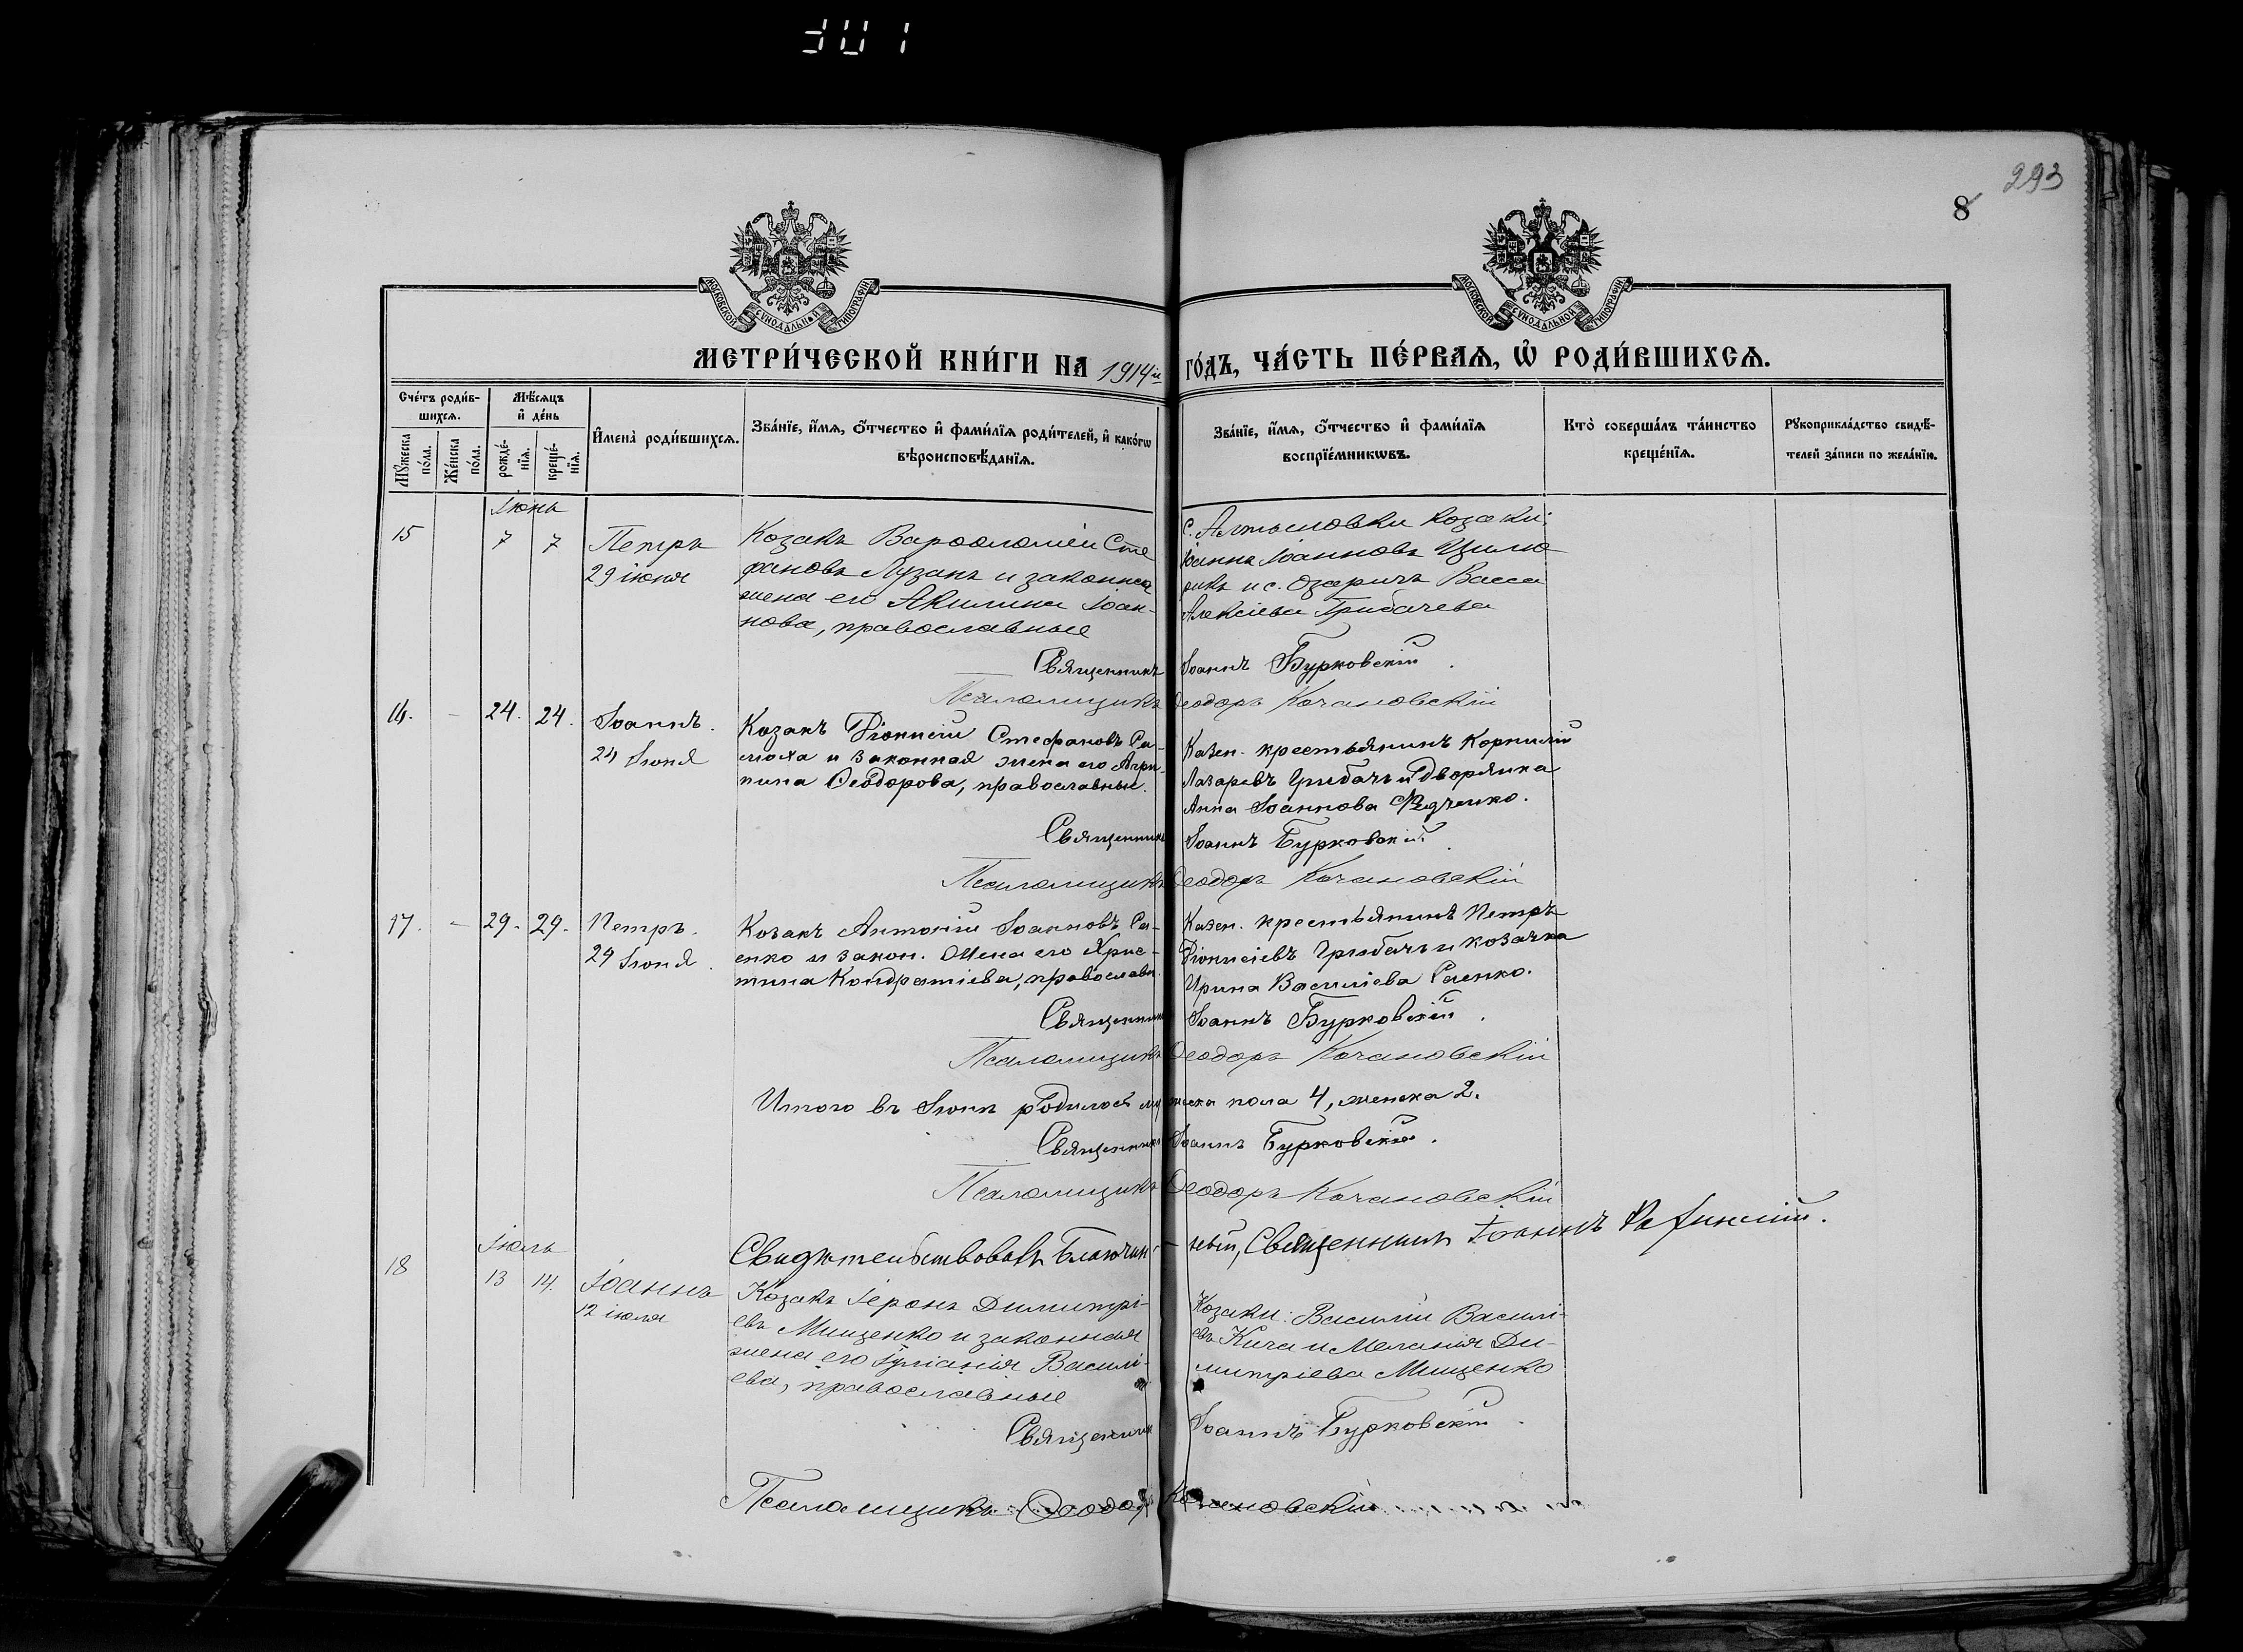 301
293
8
МОСКОВСКОЙ СѴНОДАЛЬНОЙ ТИПОГРАФІИ
МОСКОВСКОЙ СѴНОДАЛЬНОЙ ТИПОГРАФІИ
МЕТРИ́ЧЕСКОЙ КНИ́ГИ НА 1914й ГО́ДЪ, ЧА́СТЬ ПЕ́РВАѦ, Ѡ҆ РОДИ́ВШИХСѦ.
Сче́тъ роди́в-
шихсѧ.
Мꙋ́жеска
по́ла.
Же́нска
по́ла.
Мѣ́сѧцъ
и҆ де́нь
рожде́-
нїѧ.
креще́-
нїѧ.
И҆мена̀ роди́вшихсѧ.
Зва́нїе, и҆́мѧ, ѻ҆́тчество и҆ фами́лїѧ роди́телей, и҆ како́гѡ
вѣроисповѣ́данїѧ.
Зва́нїе, и҆́мѧ, ѻ҆́тчество и҆ фами́лїѧ
воспрїе́мникѡвъ.
Кто̀ соверша́лъ та́инство
креще́нїѧ.
Рꙋкоприкла́дство свидѣ́-
телей за́писи по жела́нїю.
Іюнь
15 7 7 Петръ
29 іюня
Козакъ Варѳоломей Сте
фановъ Лузанъ и законная
жена его Акилина Іоан-
нова, православные
с. Алтыновки козаки:
Іоаннъ Іоанновъ
и с. Озаричъ Васса
Алексіева Грибачева
Священникъ Іоаннъ Бурковскій
Псаломщикъ Ѳеодоръ Качановскій
16. - 24. 24. Іоаннъ.
24 Іюня
Козакъ Діонисій Стефановъ Са-
моха и законная жена его Агри-
пина Ѳеодорова, православные.
Казен. крестьянинъ Корнилій
Лазаревъ Грибачъ и дворянка
Анна Іоаннова
Священникъ Іоаннъ Бурковскій.
Псаломщикъ Ѳеодоръ Качановскій
17. - 29. 29. Петръ.
29 Іюня.
Козакъ Антоній Іоанновъ Са-
енко и закон. жена его Хрис-
тина Кондратіева, православн.
Казен. крестьянинъ Петръ
Діонисіевъ Грибачъ и козачка
Ирина Василіева Саенко.
Священникъ Іоаннъ Бурковскій.
Псаломщикъ Ѳеодоръ Качановскій
Итого въ Іюнѣ родилося мужеска пола 4, женска 2.
Священникъ Іоаннъ Бурковскій.
Псаломщикъ Ѳеодоръ Качановскій
Свидѣтельствовалъ Благочин- ный, Священникъ Іоаннъ
Іюль
18 13 14. Іоаннъ
12 іюля
Козакъ Іеронъ Димитрі-
евъ Мищенко и законная
жена его Іуліанія Василі-
ева, православные
Козаки: Василій Василі-
евъ Кича и Меланія Ди-
митріева Мищенко
Священникъ Іоаннъ Бурковскій.
Псаломщикъ Ѳеодоръ Качановскій